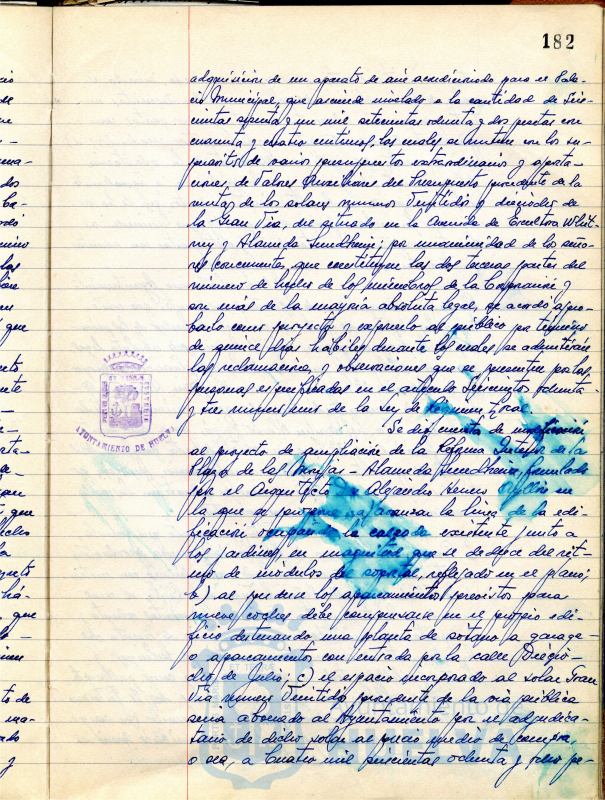 182
adquisición de un aparato de aire acondicionado para el Pala-
cio Municipal, que asciende nivelado a la cantidad de Seis-
cientas setenta y un mil setecientas ochenta y dos pesetas con
cuarenta y cuatro céntimos, las cuales se nutren con los su-
perávits de varios presupuestos extraordinarios y aporta-
ciones, de Valores Auxiliares del Presupuesto procedente de la
venta de los solares números Veintidós y dieciocho de
la Gran Vía, del situado en la Avenida de Escultora Whit-
ney y Alameda Sundheim; por unanimidad de los seño-
res concurrentes, que constituyen las dos terceras partes del
número de hecho de los miembros de la Corporación y
son más de la mayoría absoluta legal, se acordó apro-
barlo como proyecto y exponerlo al público por término
de quince días hábiles durante los cuales se admitirán
las reclamaciones y observaciones que se presenten por las
personas especificadas en el artículo Seiscientos ochenta
y tres número uno de la Ley de Régimen Local.
Se dio cuenta de modificación
al proyecto de ampliación de la Reforma Interior de la
Plaza de las Monjas - Alameda Sundheim, formulada
por el Arquitecto Don Alejandro Herrero Ayllón en
la que se propone a) avanzar la línea de la edi-
ficación ocupando la calzada existente junto a
los jardines, en magnitud que se deduce del rit-
mo de módulos de soportal, reflejado en el plano;
b) al perderse los aparcamientos previstos para
nueve coches debe compensarse en el propio edi-
ficio destinando una planta de sótano a garage-
o aparcamiento con entrada por la calle Dieciо-
cho de Julio; c) el espacio incorporado al solar Gran
Vía número Veintidós procedente de la vía pública
sería abonado al Ayuntamiento por el adjudica-
tario de dicho solar al precio medio de compra
o sea, a Cuatro mil seiscientas ochenta y ocho pe-
AYUNTAMIENTO DE HUELVA